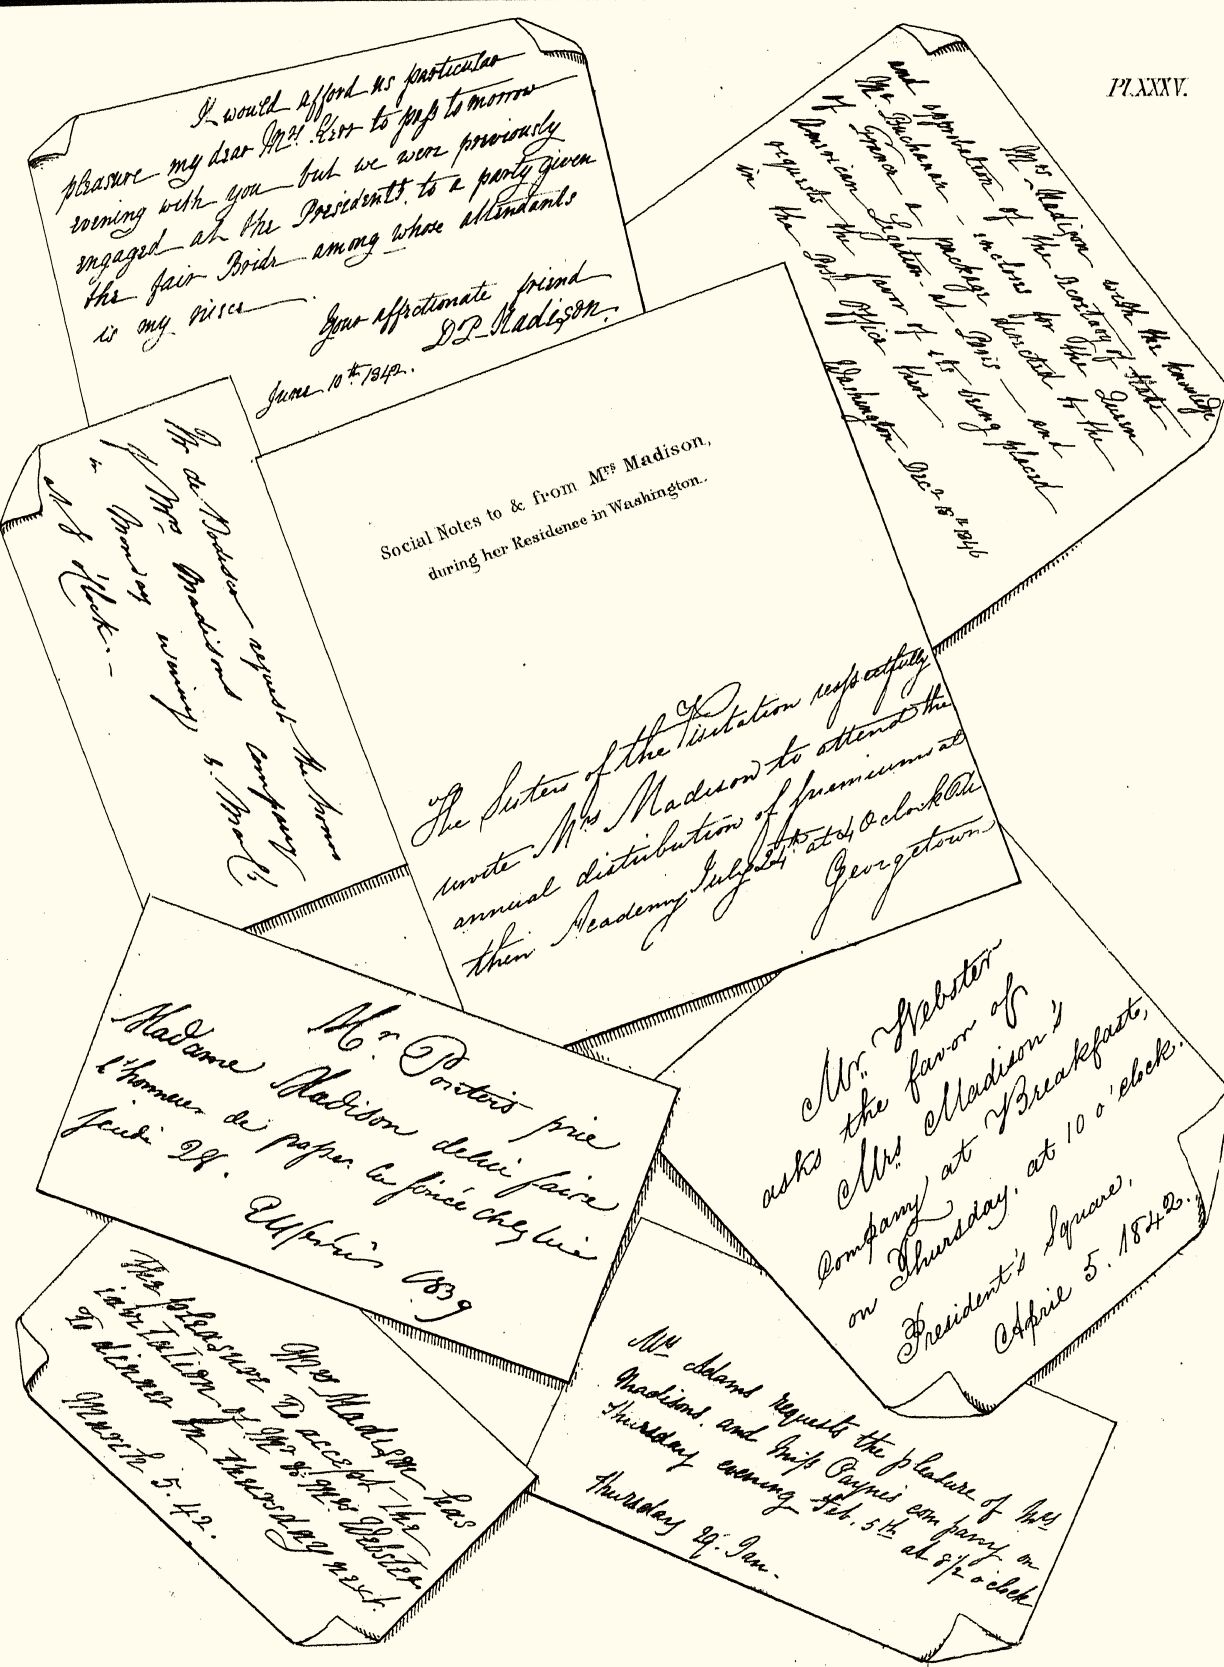 PL.XXXV.
It would afford us particular
pleasure my dear Mrs. to pass tomorrow
evening with you but we were previously
engaged at the Presidents. to a party given
the fair Bride among whose attendants
is my niece
Your affectionate friend
D P Madison.
June 10th 1842.
Mrs Madison with the knowledge
and approbation of the Secretary of State
Mr Buchanan - incloses for the Queen
of France a package directed to the
American Legation at Paris - and
requests the favor of its being placed
in the Post Office then
Washington Decr 18th 1846
Social Notes to & from Mrs Madison,
during her Residence in Washington.
Mr de Bodisco request the honor
of Mrs Madisons company
in Monday evening, Mar
at 8 o'Clock. -
The Sisters of the Visitation respectfully
invite Mrs Madison to attend the
annual distribution of premiums at
their Academy July 24th at 4 O clock PM
Georgetown
Mr. Pontois prie
Madame Madison de lui faire
l'honneur de passer la soirée chez lui
Jeudi 28.
1839
Mr. Webster
asks the favor of
Mrs Madison's
Company at Breakfast,
on Thursday, at 10 o'clock.
President's Square,
April 5. 1842.
Mrs Madison has
the pleasure to accept the
invitation of Mr & Mrs Webster
To dinner on thursday next.
March 5. 42.
Mrs Adams requests the pleasure of Mrs
Madisons, and Miss Payne's company on
thursday evening Feb. 5th at 8½ o'clock
thursday 29. Jan.